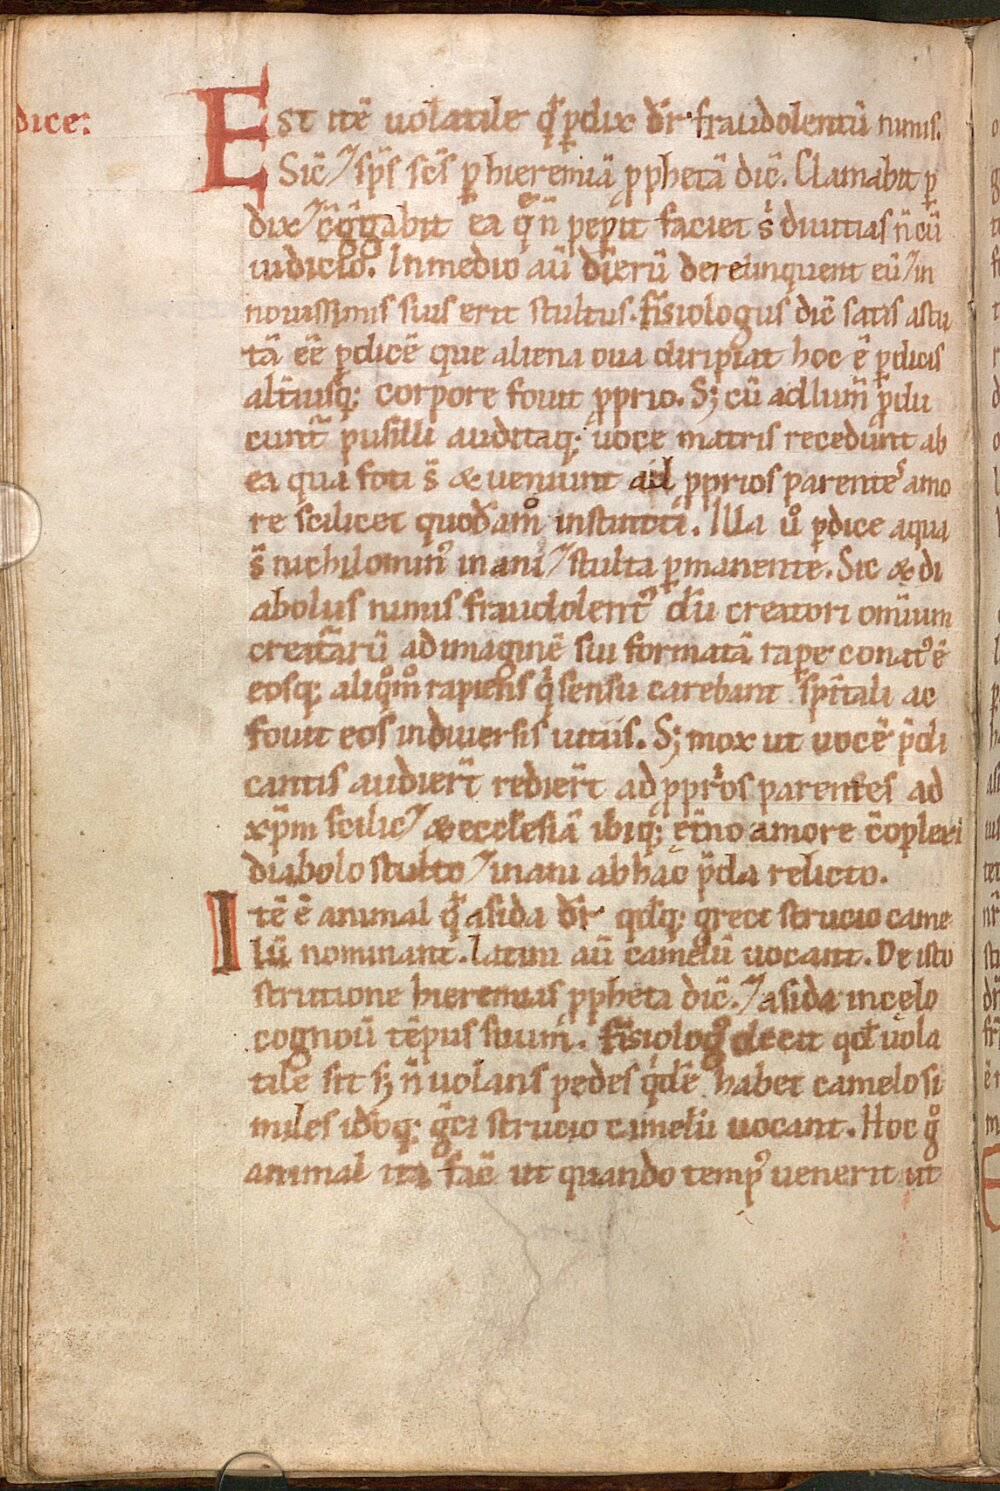 dice:
Est itē uolatile qđ ꝑdix dr̄ fraudolentū nimis.
Sic̄ sp̄s sc̄s ꝑ hieremiā ꝓphetā dic̄. Clamabit ꝑ
dix c̄g̃gabit ea q̄ n̄ peꝑit faciet s̉ diuitias n̄ cū
iudicio. In medio aū dierū derelinquent eū in
nouissimis suis erit stultus. fisiologus dic̄ satis astu
tā eē ꝑdicē que aliena oua diripiat hoc ē ꝑdicis
alt̄iusq; corpore fouit ꝓprio. Sꝫ cū ad lum̄ ꝓdu
cunt̄ pusilli auditaq; uoce matris recedunt ab
ea qua foti s̄ & ueniunt ad ꝓprios parentes amo
re scilicet quodam instinctī. Illa ů ꝑdice aqua
s̄ nichilomin᾿ inani stulta ꝑmanente. Sic & di
abolus nimis fraudolent᾿ dū creatori omium
creat̄arū ad imaginē sui formatā raꝑe conat᾿ ē
eosq; aliqͦmͦ rapiens q̉ sensu carebant spr̄itali ac
fouit eos in diuersis uitiis. Sꝫ mox ut uocē p̄di
cantis audier̄t redier̄t ad ꝓprios parentes ad
xp̄m scilic & ecclesiā ibiq; ęt̄no amore c̄oplexi
diabolo stulto inani ab hac p̄da relicto.
Itē ē animal qđ asida dr̄ qđq; greci strucio came
lū nominant. latini aū camelū uocant. De isto
strutione hieremias ꝓpheta dic̄. asida in cęlo
cognoū tēpus suum. fisiolog᾿ docet qđ uola
tile sit sꝫ n̄ uolans pedes q̉dē habet camelo si
miles idoq; g̃ci strucio camelū uocant. Hoc g̊
animal ita fac̄ ut quando temp᾿ uenerit ut